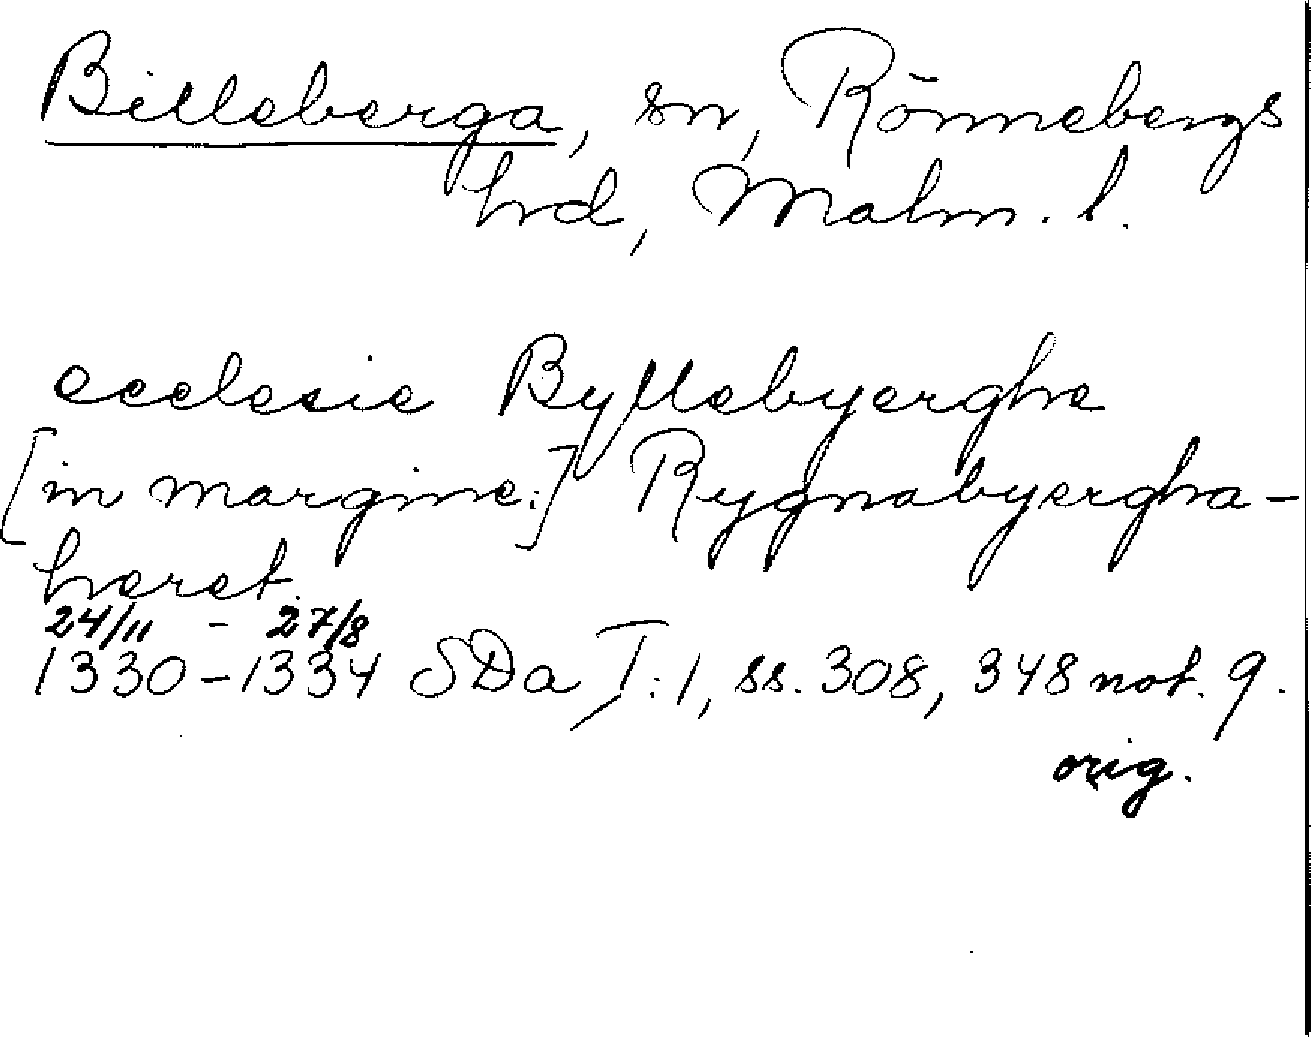 Billeberga, sn, Rönnebergs
hrd, Malm. l.
ecclesie Byllebyerghe
[in margine:] Rygnabyergha-
heret.
24/11 - 27/8
1330-1334 SDa I:1, ss. 308, 348 not. 9.
orig.